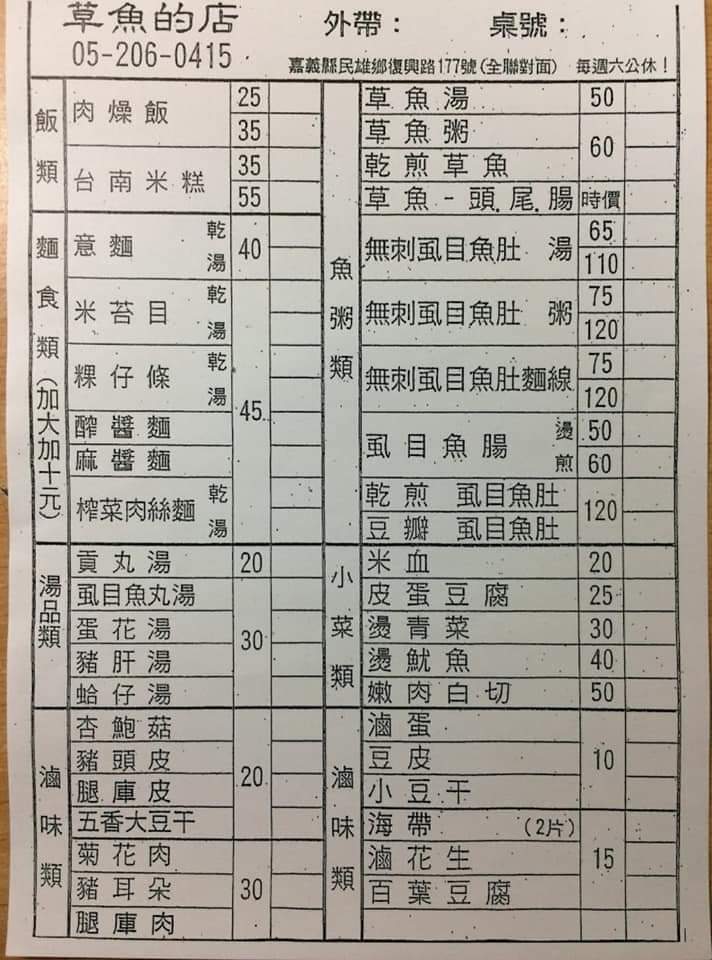 草魚的店 外帶： 桌號：
05-206-0415 嘉義縣民雄鄉復興路177號(全聯對面) 每週六公休！
飯類
肉燥飯 25
35
台南米糕 35
55
麵食類(加大加十元)
意麵 乾 湯 40
米苔目 乾 湯 45
粿仔條 乾 湯
醡醬麵
麻醬麵
榨菜肉絲麵 乾 湯
湯品類
貢丸湯 20
虱目魚丸湯 30
蛋花湯
豬肝湯
蛤仔湯
滷味類
杏鮑菇 20
豬頭皮
腿庫皮
五香大豆干
菊花肉 30
豬耳朵
腿庫肉
魚粥類
草魚湯 50
草魚粥 60
乾煎草魚
草魚-頭.尾.腸 時價
無刺虱目魚肚 湯 65
110
無刺虱目魚肚 粥 75
120
無刺虱目魚肚麵線 75
120
虱目魚腸 燙 50
煎 60
乾煎 虱目魚肚 120
豆瓣 虱目魚肚
小菜類
米血 20
皮蛋豆腐 25
燙青菜 30
燙魷魚 40
嫩肉白切 50
滷味類
滷蛋 10
豆皮
小豆干
海帶 (2片) 15
滷花生
百葉豆腐